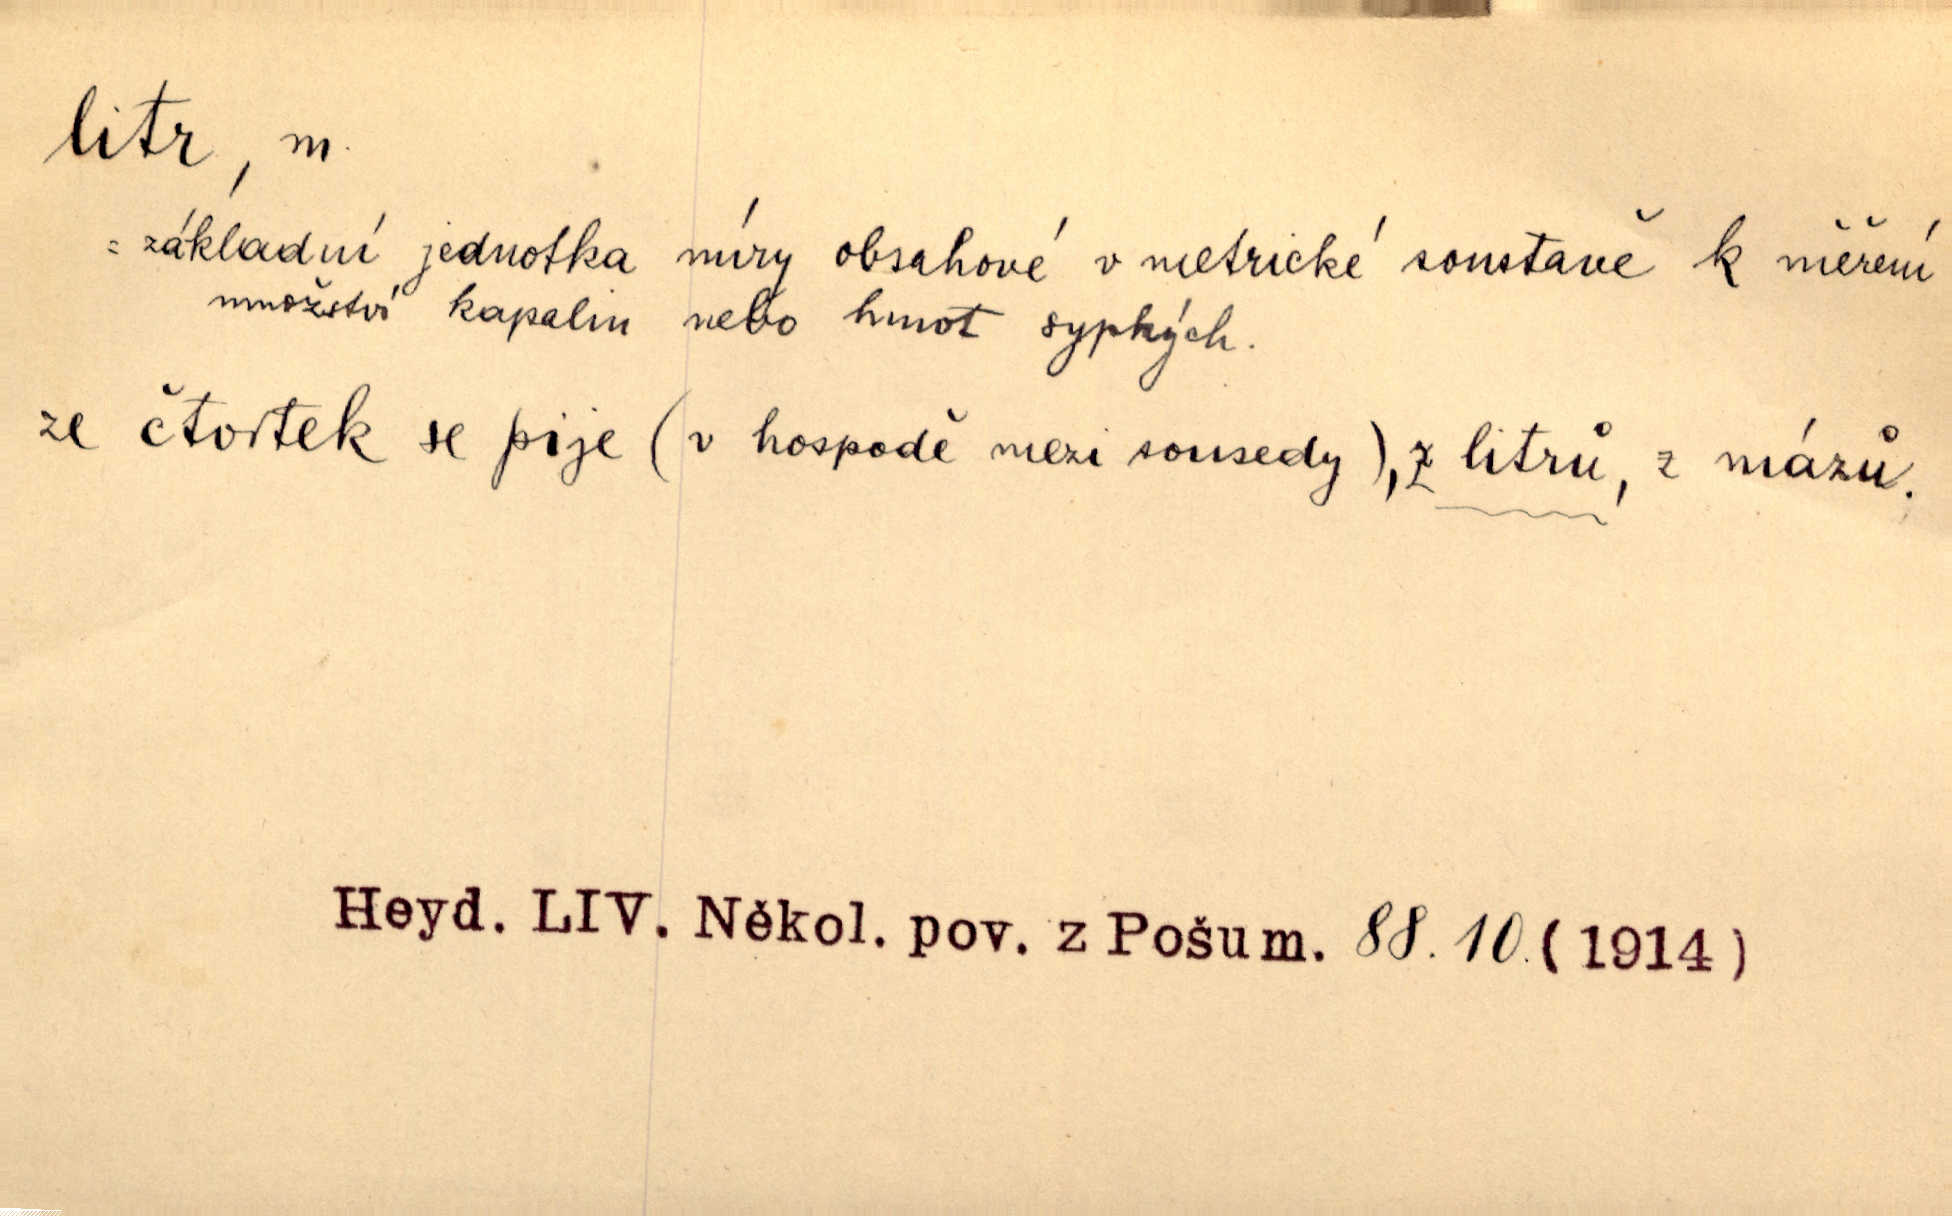 litr, m.
= základní jednotka míry obsahové v metrické soustavě k měření
množství kapalin nebo hmot sypkých.
ze čtvrtek se pije (v hospodě mezi sousedy), z litrů, z mázů.
Heyd. LIV. Někol. pov. z Pošum. 88. 10. (1914)